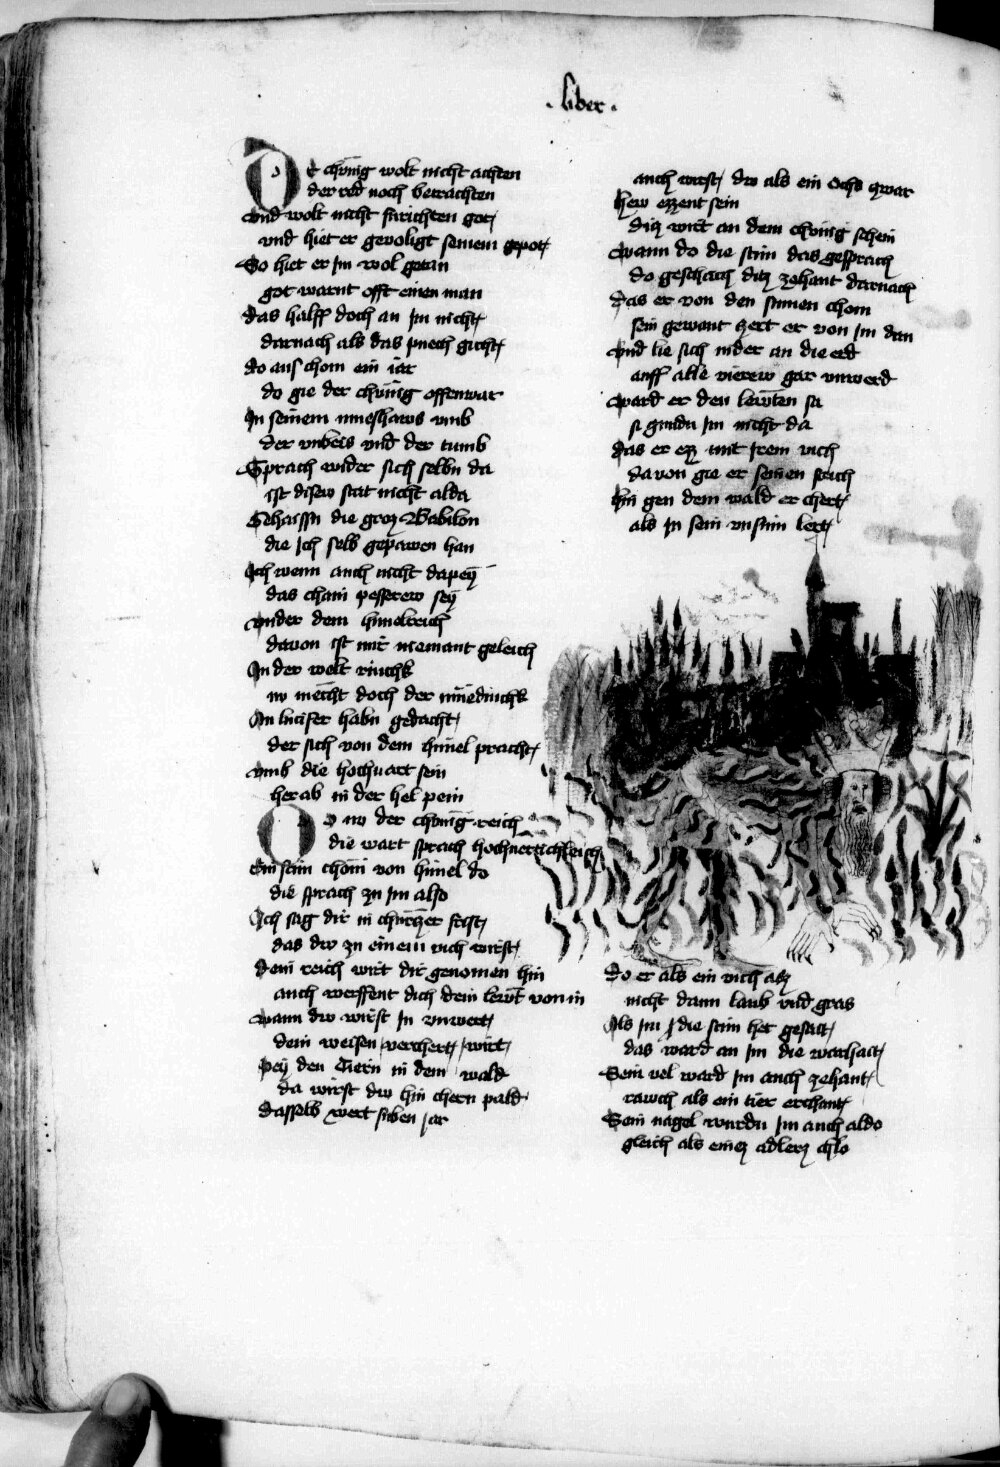 . liber .
Der chünig wolt nicht achten
der red noch betrachten
Vnd wolt nicht fürichten got
vnd hiet er gevoligt seinem gepot
So hiet er im wol getan
got warnt offt einen man
das halff doch an im nicht
darnach als das puech gicht
do aus chom ein iar
do gie der chünig offenwar
In seinem mueshaws vmb
der vnweis vnd der tumb
Sprach wider sich selbn da
ist disew stat nicht alda
Gehaissn die groz Babilon
die ich selb gepawen han
Ich wenn auch nicht dapey
das chain pesserew sey
vnder dem himelreich
davon ist mir niemant geleich
In der welt rinchk
nv mecht doch der
An lucifer habn gedacht
der sich von dem himel pracht
vmb die hochuart sein
herab in der hel pein
Do nv der chünig reich
die wart sprach hochuerttichleich
Ein stim chom von himel do
die sprach zu im also
Ich sag dir in churczer frist
das dw zu einem vich wirst
Dein reich wirt dir genomen hin
auch werffent dich dein lewt von in
wann dw wirst in vnwert
dein weisen verchert wirt
Pey den tiern in dem wald
da wirst dw hin chern pald
dasselb wert siben iar
auch wirst dw als ein ochs gwar
hew ezzent sein
dicz wirt an dem chünig schein
Wann do die stim das gesprach
do geschach dicz zehant darnach
das er von den sinnen chom
sein gewant zert er von im dan
Vnd lie sich nider an die erd
auff alle vierew gar vnwerd
Ward er den lewten sa
si gundn im nicht da
das er ez mit irem vich
da von gie er seinen strich
hin gen dem wald er chert
als in sein vnsinn lert
do er als ein vich az
nicht dann laub vnd gras
Als im die stim het gesait
das ward an im die warhait
Sein vel ward im auch zehant
rawch als ein tier erchant
Sein nagel wurdn im auch aldo
gleich als einez adlerz chlo